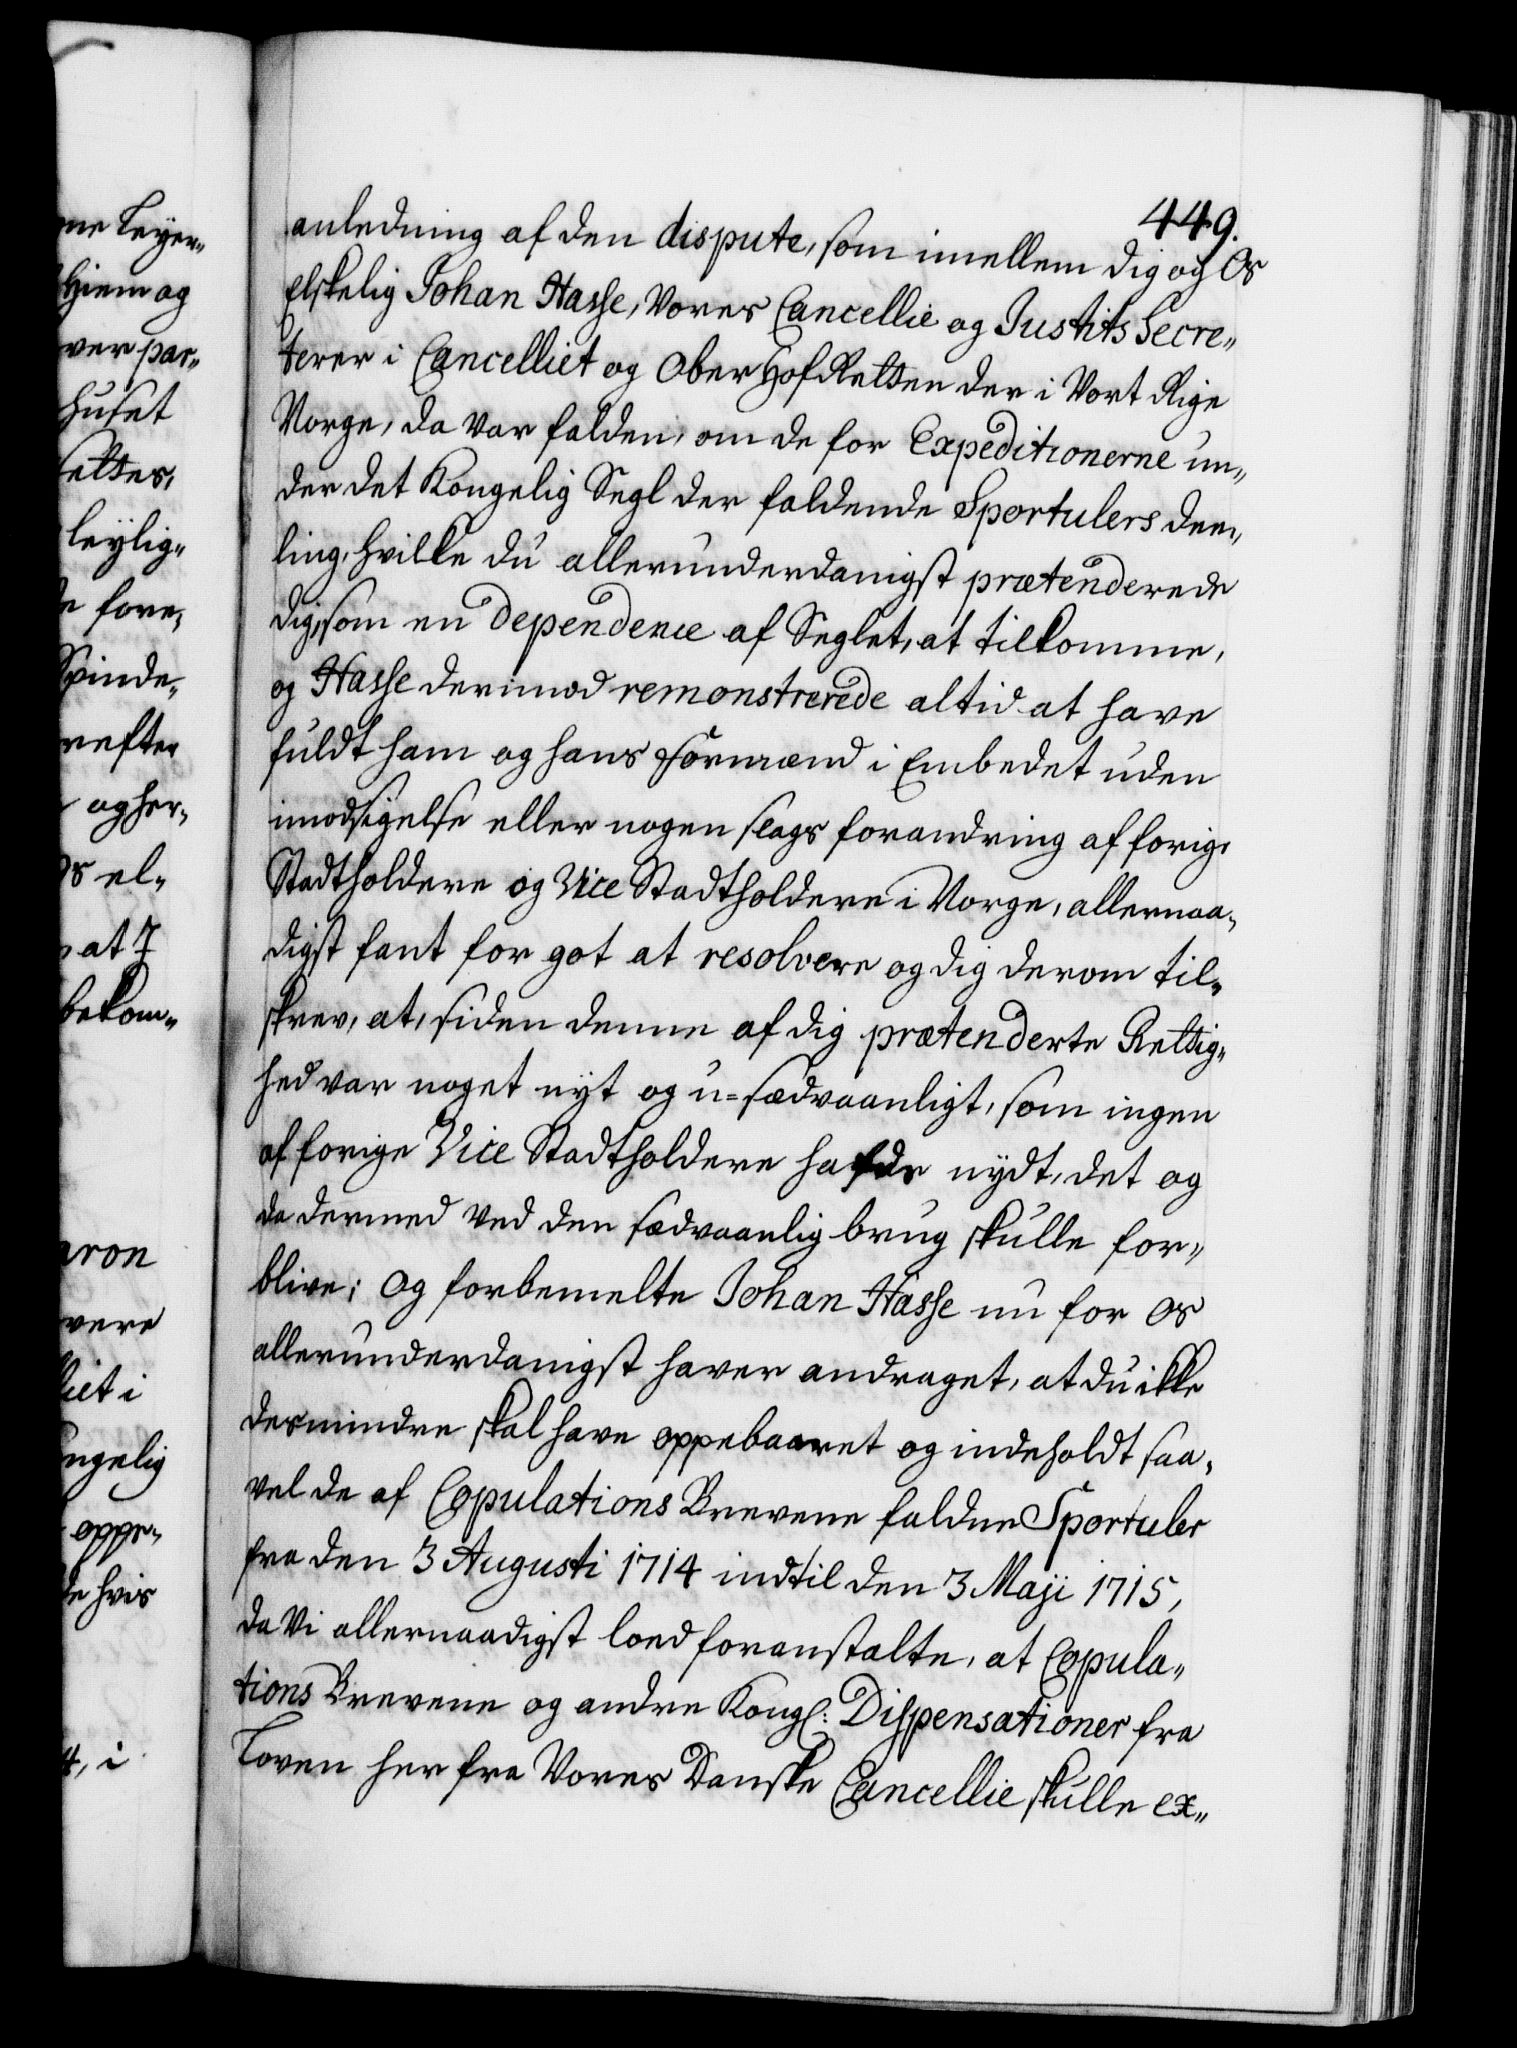 449.
anledning af den dispute, som imellem dig og Os
Elskelig Johan Hasse, Vores Cancellie og Justits Secre„
terer i Cancelliet og Ober Hof Retten der i Vort Rige
Norge, da var falden, om de for Expeditionerne un„
der det Kongelig Segl der faldende Sportulers dee„
ling, hvilke du allerunderdanigst prætenderede
dig, som en dependence af Seglet, at tilkomme,
og Hasse derimod remonstrerede altid at have
fuldt ham og hans Formænd i Embedet uden
imodsigelse eller nogen slags forandring af forige
Stadtholdere og Vice Stadtholdere i Norge, allernaa„
digst fant for got at resolvere og dig derom til„
skrev, at, siden denne af dig prætenderte Rettig„
hed var noget nyt og u=sædvaanligt, som ingen
af forige Vice Stadtholdere hafde nydt, det og
da dermed ved den sædvaanlig brug skulle for„
blive; Og forbemelte Johan Hasse nu for Os
allerunderdanigst haver andraget, at du ikke
desmindre skal have oppebaaret og indeholdt saa„
vel de af Copulations Brevene faldne Sportuler
fra den 3 Augusti 1714 indtil den 3 Maji 1715,
da Vi allernaadigst loed foranstalte, at Copula„
tions Brevene og andre Kongl: Dispensationer fra
Loven her fra Vores Danske Cancellie skulle ex„